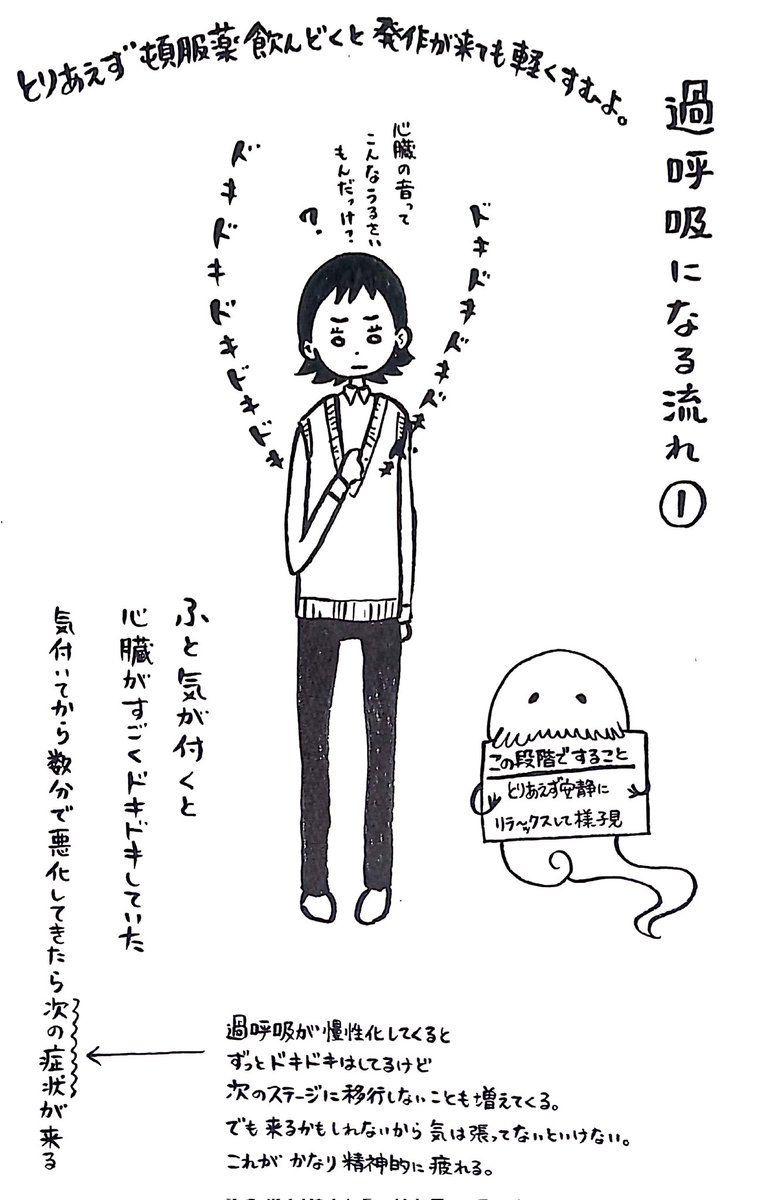 とりあえず頓服薬飲んどくと発作が来ても軽くすむよ。
過呼吸になる流れ①
心臓の音って
こんなうるさい
もんだっけ？
？
ドキドキドキドキドキ
ドキドキドキドキ
ふと気が付くと
心臓がすごくドキドキしていた
気付いてから数分で悪化してきたら次の症状が来る
この段階ですること
とりあえず安静に
リラ〜ックスして様子見
過呼吸が慢性化してくると
ずっとドキドキはしてるけど
次のステージに移行しないことも増えてくる。
でも来るかもしれないから気は張ってないといけない。
これがかなり精神的に疲れる。